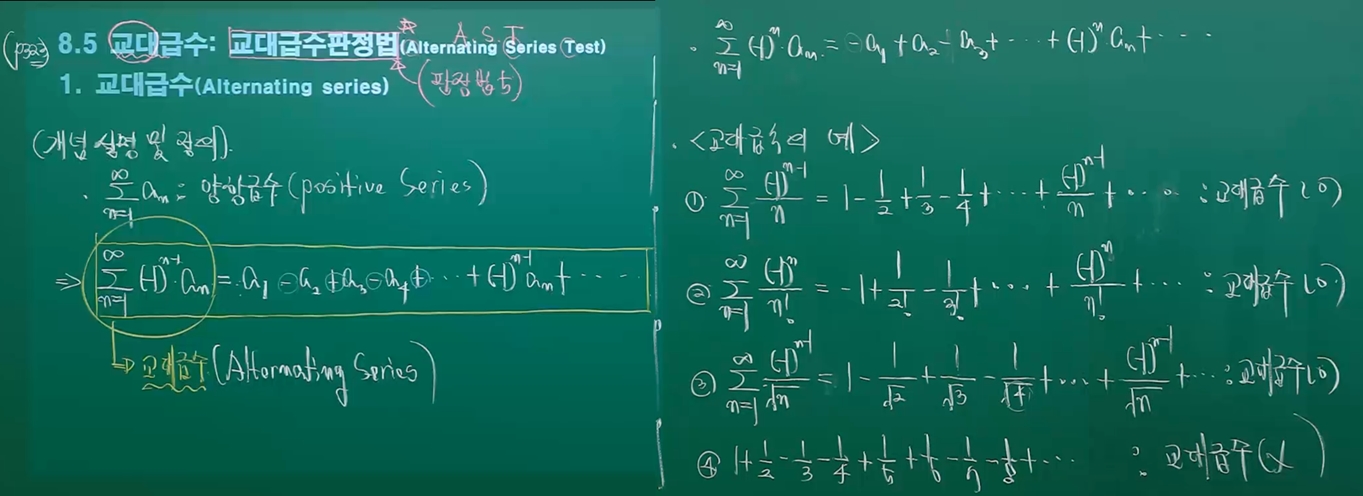 (p323) 8.5 교대급수: 교대급수판정법(Alternating Series Test)
A. S. T
1. 교대급수(Alternating series)
(판정법 5)
(개념 설명 및 정의).
· ∑_{n=1}^{∞} aₙ : 양항급수 (positive Series)
⇒ ∑_{n=1}^{∞} (-1)^{n-1}·aₙ = a₁ - a₂ + a₃ - a₄ + ··· + (-1)^{n-1} aₙ + ·····
⇒ 교대급수 (Alternating Series)
· ∑_{n=1}^{∞} (-1)^n·aₙ = -a₁ + a₂ - a₃ + ··· + (-1)^n aₙ + ···
· <교대급수의 예>
① ∑_{n=1}^{∞} (-1)^{n-1}/n = 1 - 1/2 + 1/3 - 1/4 + ··· + (-1)^{n-1}/n + ··· : 교대급수 (O)
② ∑_{n=1}^{∞} (-1)^n/n! = -1 + 1/2! - 1/3! + ··· + (-1)^n/n! + ··· : 교대급수 (O)
③ ∑_{n=1}^{∞} (-1)^{n-1}/√n = 1 - 1/√2 + 1/√3 - 1/√4 + ··· + (-1)^{n-1}/√n + ··· : 교대급수 (O)
④ 1 + 1/2 - 1/3 - 1/4 + 1/5 + 1/6 - 1/7 - 1/8 + ··· : 교대급수 (X)